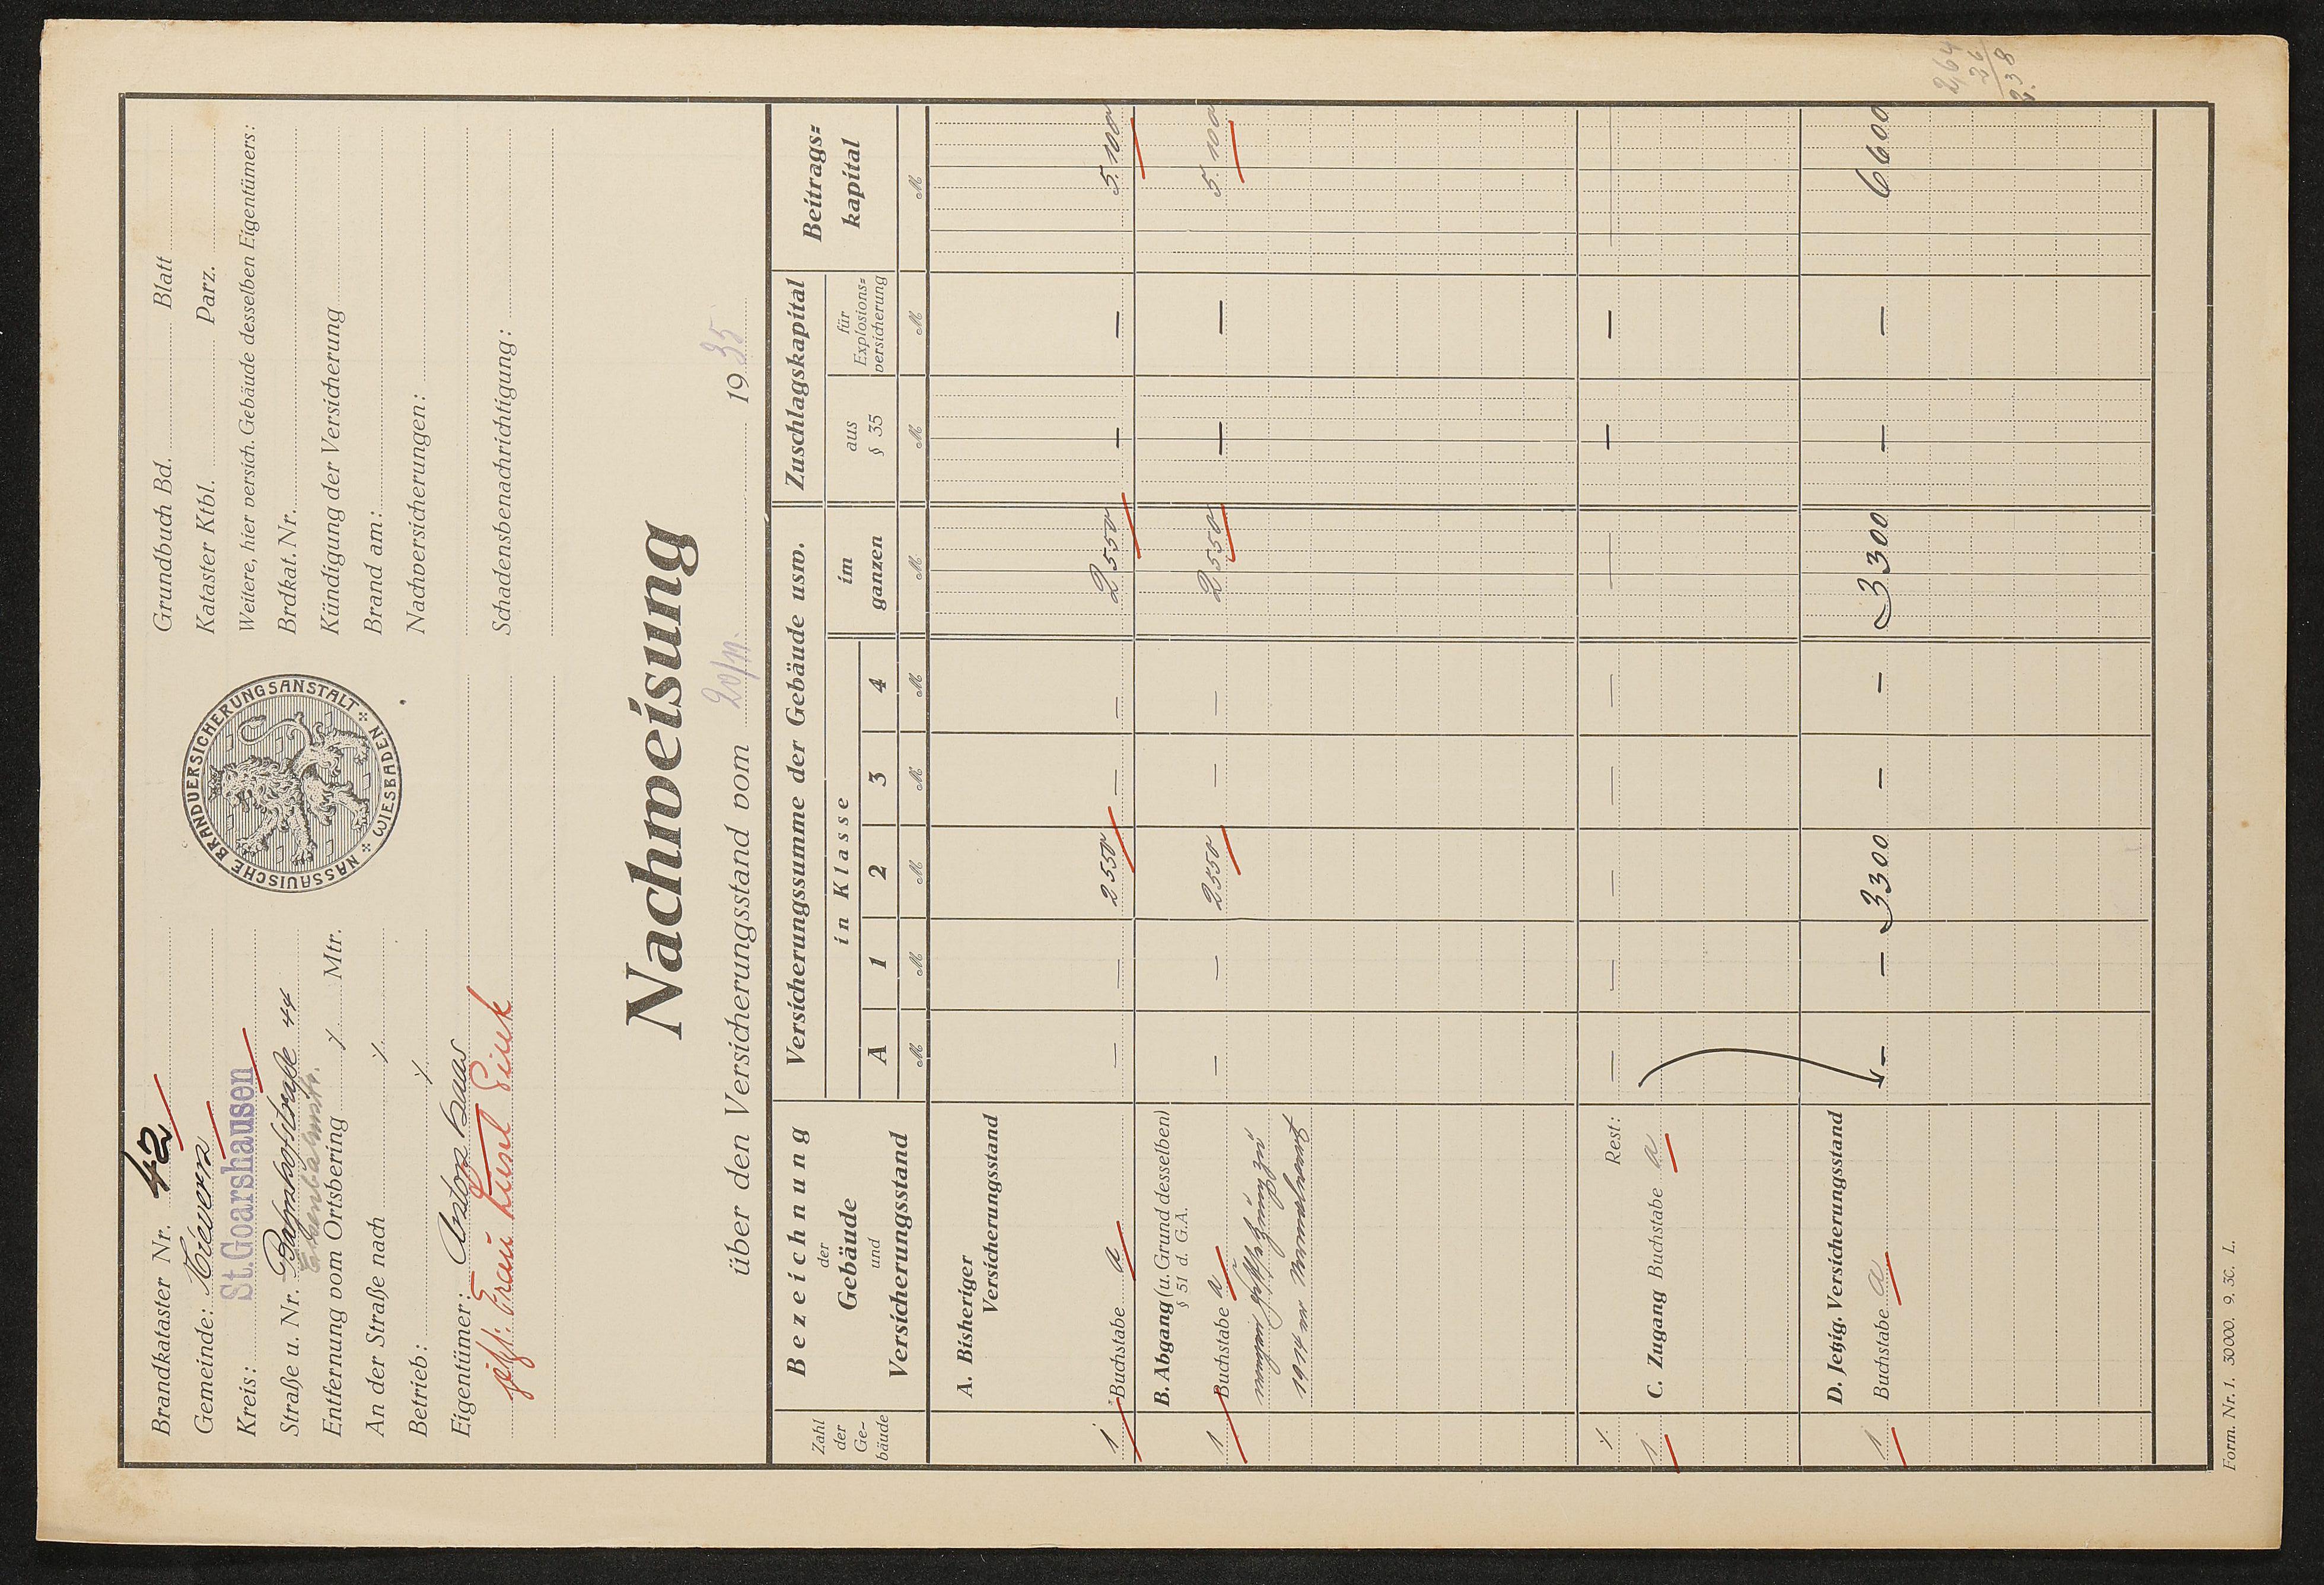 Brandkataster Nr. 42
Gemeinde: Niévern
Kreis: St. Goarshausen
Straße u. Nr. Bahnhofstraße 44
Entfernung vom Ortsbering ⁒ Mtr.
An der Straße nach ⁒
Betrieb: ⁒
Eigentümer: Anton
jetzt: Frau
NASSAUISCHE BRANDVERSICHERUNGSANSTALT WIESBADEN
Grundbuch Bd. Blatt
Kataster Ktbl. Parz.
Weitere, hier versich. Gebäude desselben Eigentümers:
Brdkat. Nr.
Kündigung der Versicherung
Brand am:
Nachversicherungen:
Schadensbenachrichtigung:
Nachweisung
über den Versicherungsstand vom 20/11. 1935
Zahl der Ge-bäude
Bezeichnung der Gebäude und Versicherungsstand
Versicherungssumme der Gebäude usw.
in Klasse
A 1 2 3 4
im ganzen
Zuschlagskapital
aus § 35
für Explosions=versicherung
Beitrags=kapital
M M M M M M M M M
A. Bisheriger
Versicherungsstand
1 Buchstabe a — — 2550 — — 2550 — — 5.100
B. Abgang (u. Grund desselben)
§ 51 d. G.A.
1 Buchstabe a — — 2550 — — 2550 — — 5.100
wegen
1914er
⁒ Rest: — — — — — — — — —
1 C. Zugang Buchstabe a
D. Jetzig. Versicherungsstand
1 Buchstabe a — — 3300 — — 3300 — — 6600
264
26
238
Form. Nr. 1. 30000. 9. 30. L.